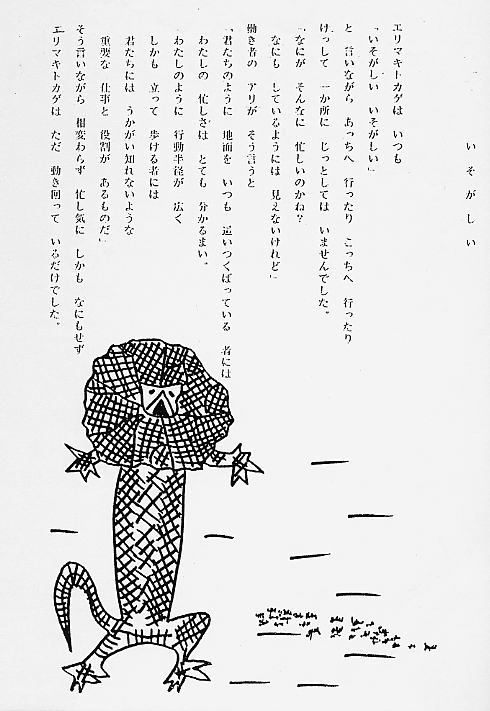 いそがしい
エリマキトカゲは いつも
「いそがしい いそがしい」
と 言いながら あっちへ 行ったり こっちへ 行ったり
けっして 一か所に じっとしては いませんでした。
「なにが そんなに 忙しいのかね?
なにも しているようには 見えないけれど」
働き者の アリが そう言うと
「君たちのように 地面を いつも 這いつくばっている 者には
わたしの 忙しさは とても 分かるまい。
わたしのように 行動半径が 広く
しかも 立って 歩ける者には
君たちには うかがい知れないような
重要な 仕事と 役割が あるものだ」
そう言いながら 相変わらず 忙し気に しかも なにもせず
エリマキトカゲは ただ 動き回って いるだけでした。